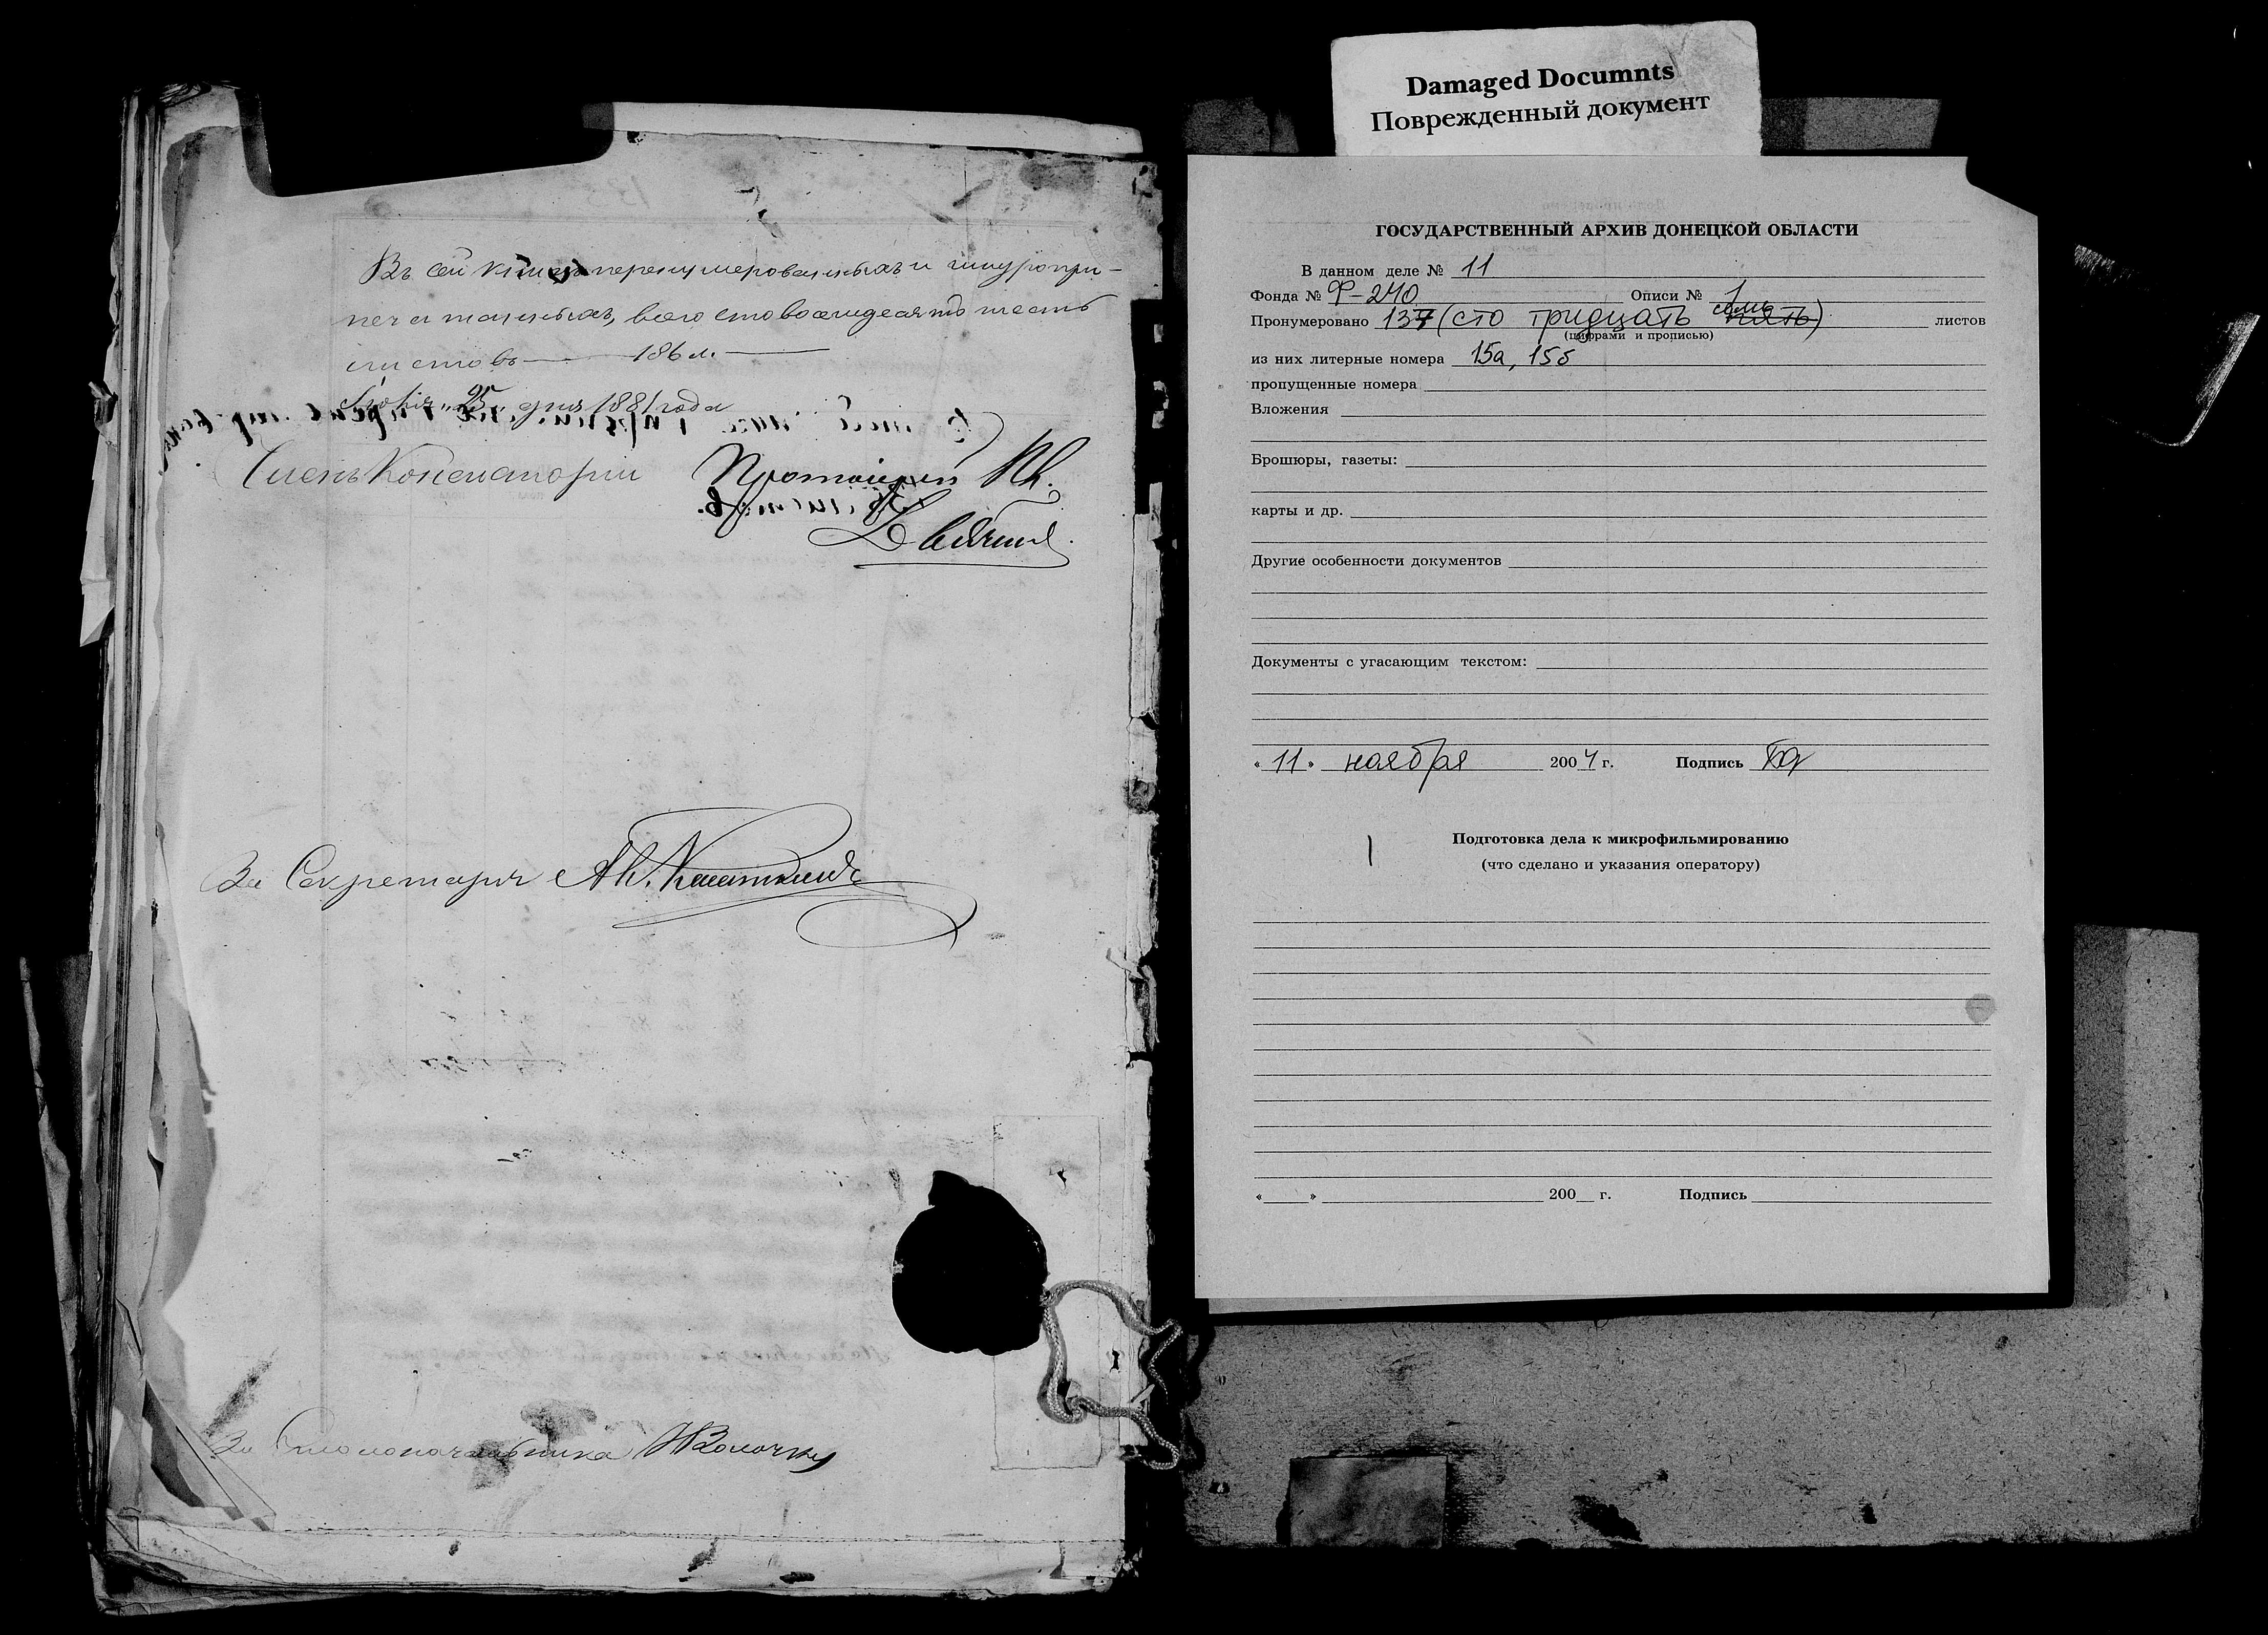 Damaged Documnts
Поврежденный документ
Въ сей книгѣ перенумерованныхъ и шнуропри-
печатанныхъ, всего стовосемдесятъ шесть
листовъ 186 л.
Іюня „25„ дня 1881 года
Членъ Консисторіи Протоіерей
За Секретаря
За Столоначальника
ГОСУДАРСТВЕННЫЙ АРХИВ ДОНЕЦКОЙ ОБЛАСТИ
В данном деле № 11
Фонда № Ф-240 Описи № 1
Пронумеровано 137 (сто тридцать семь пять) листов
(цифрами и прописью)
из них литерные номера 15а, 15б
пропущенные номера
Вложения
Брошюры, газеты:
карты и др.
Другие особенности документов
Документы с угасающим текстом:
« 11 » ноября 2004 г. Подпись
Подготовка дела к микрофильмированию
(что сделано и указания оператору)
« » 200 г. Подпись